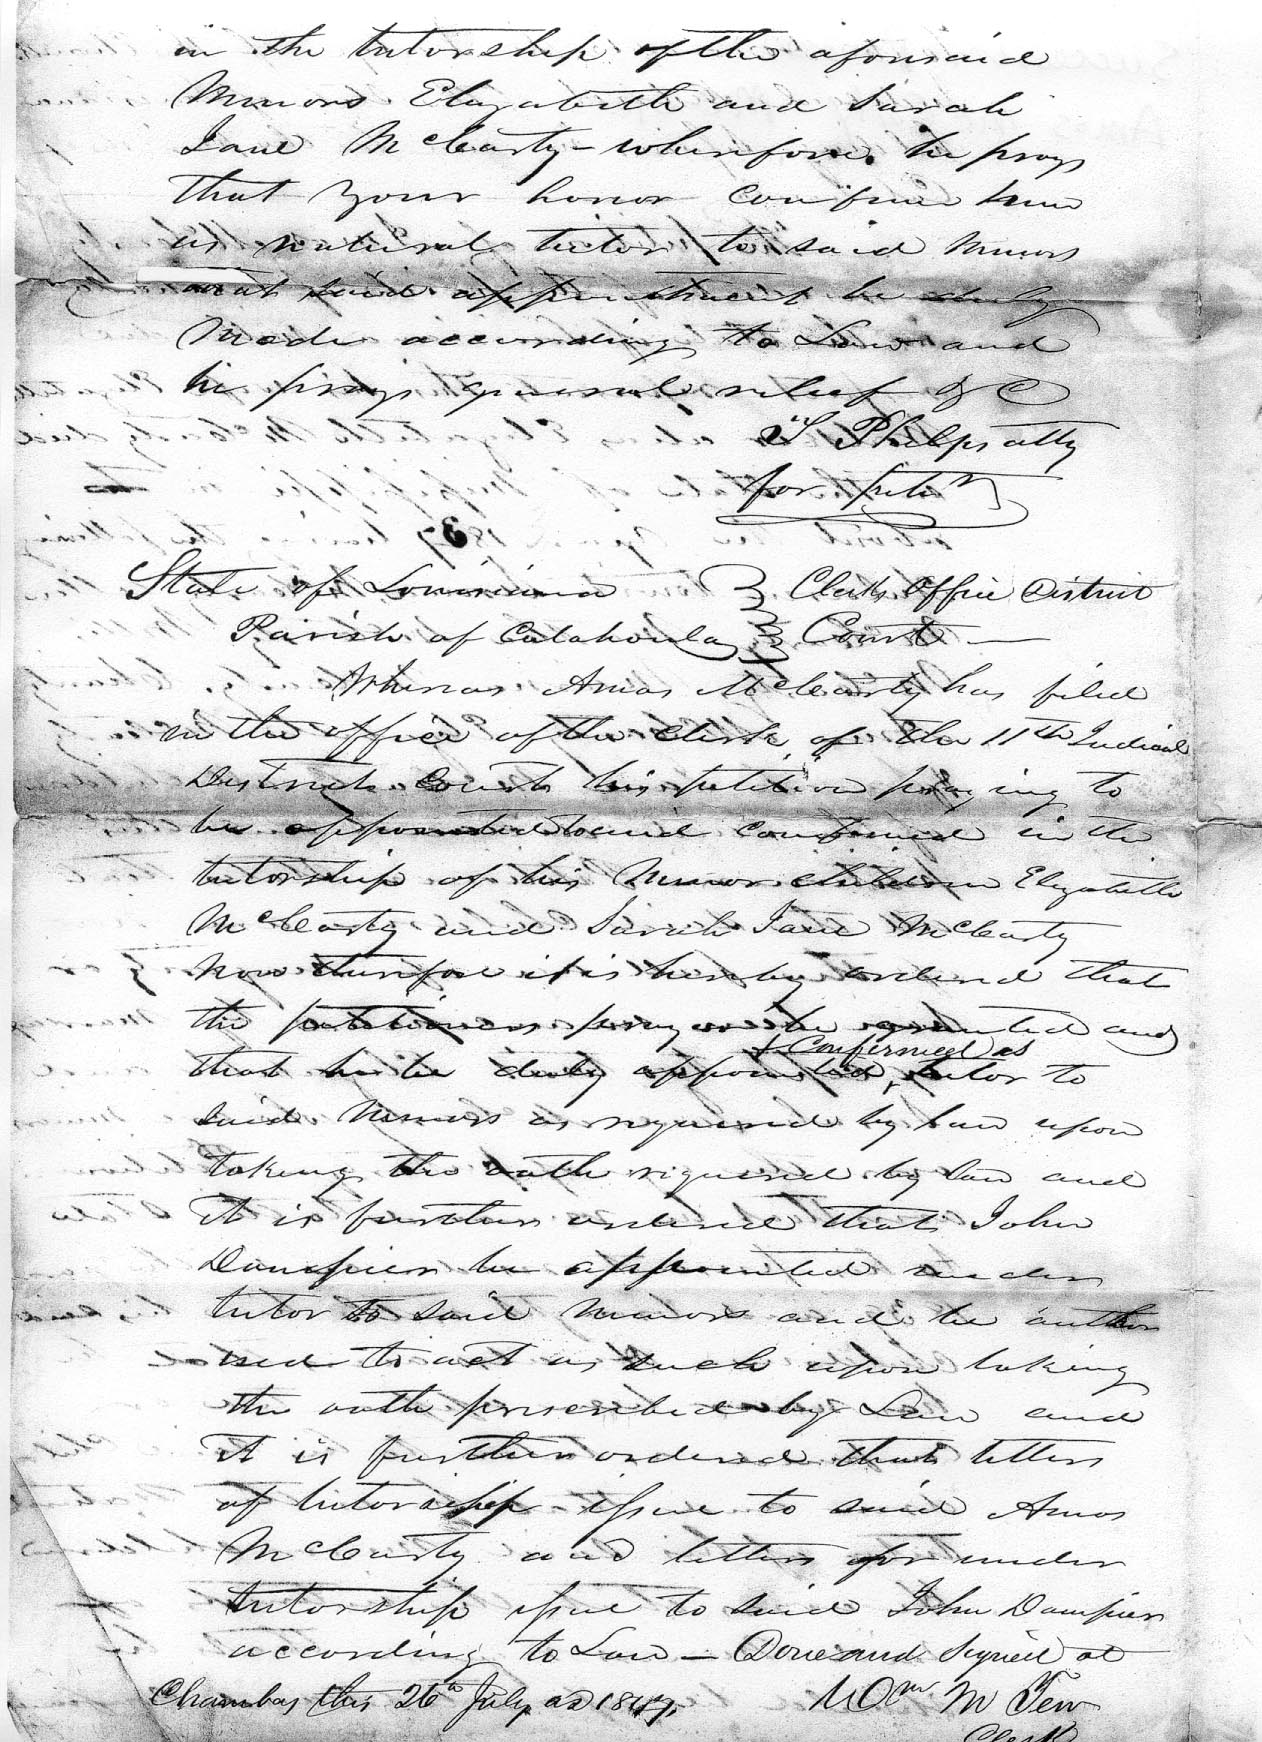 in the tutorship of the aforesaid
Minors Elizabeth and Sarah
Jane McCarty – wherefore he prays
that your honor confirm him
as natural tutor to said Minors
that said appointment be duly
Made according to Law and
he prays general relief &C
S Phelps atty
for petnr
State of Louisiana } Clerks Office District
Parish of Catahoula } Court —
Whereas Amos McCarty has filed
in the office of the Clerk of the 11th Judicial
District Court his petition praying to
be appointed and confirmed in the
tutorship of his Minor children Elizabeth
McCarty and Sarah Jane McCarty
Now therefore it is hereby ordered that
the petitioners prayer be granted and
& Confirmed as
that he be duly appointed tutor to
said Minors as required by law upon
taking the oath required by law and
it is further ordered that John
Dampier be appointed under
tutor to said Minors and be author
ised to act as such upon taking
the oath prescribed by Law and
it is further ordered that letters
of tutorship issue to said Amos
McCarty and letters for under
tutorship issue to said John Dampier
according to Law – Done and Signed at
Chambers this 26th July AD 1847.
Wm M Tew
Clerk